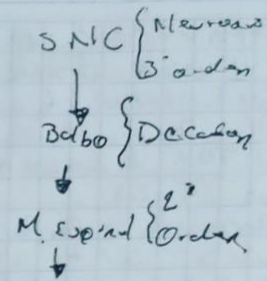 SNC { Neurona
3° orden
Bulbo { Decusan
M. Espinal { 2°
Orden